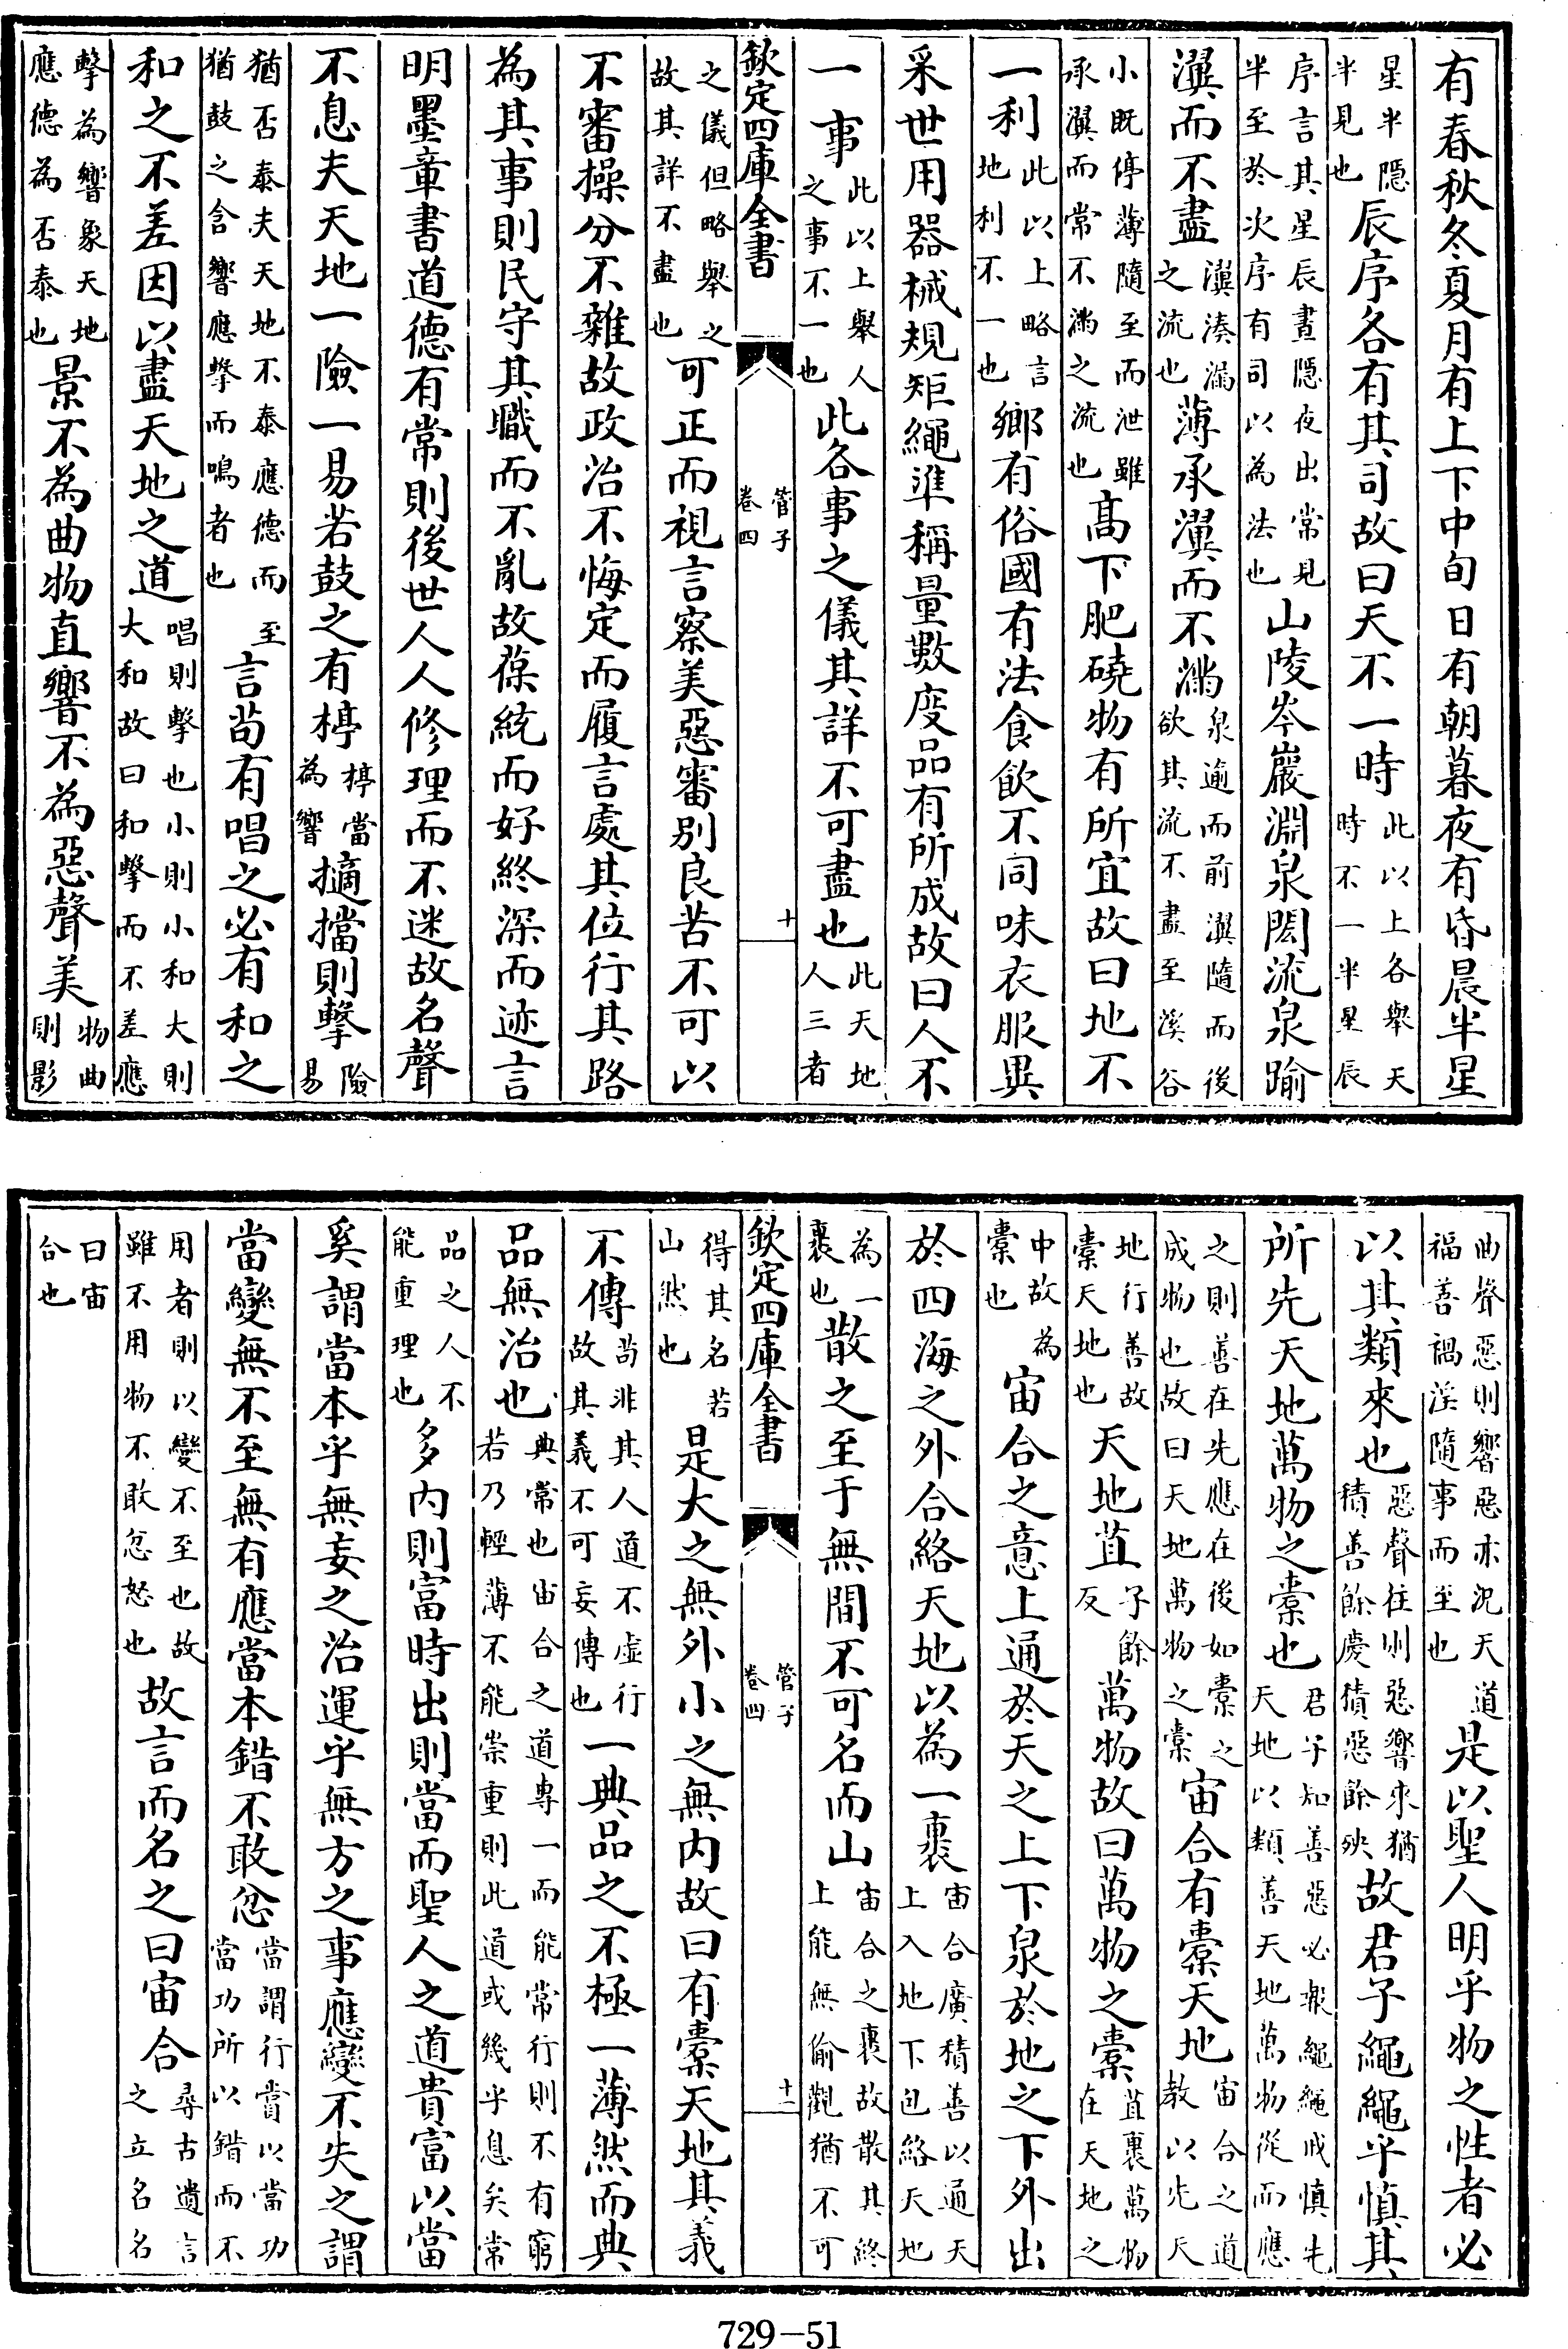 有春秋冬夏月有上下中旬日有朝暮夜有昏晨半星
星半隠半見也辰序各有其司故曰天不一時此以上各舉天時不一半星辰
序言其星辰晝隠夜出常見半至於次序有司以為法也山陵岑巖淵泉閎流泉踰
瀷而不盡瀷湊漏之流也薄承瀷而不滿泉逾而前瀷隨而後欲其流不盡至溪谷
小既停薄隨至而泄雖承瀷而常不滿之流也高下肥磽物有所宜故曰地不
一利此以上略言地利不一也鄉有俗國有法食飲不同味衣服異
采世用器械規矩繩準稱量數度品有所成故曰人不
一事此以上舉人之事不一也此各事之儀其詳不可盡也此天地人三者
欽定四庫全書
管子
卷四
十
之儀但略舉之故其詳不盡也可正而視言察美惡審别良苦不可以
不審操分不雜故政治不悔定而履言處其位行其路
為其事則民守其職而不亂故葆統而好終深而迹言
明墨章書道德有常則後世人人修理而不迷故名聲
不息夫天地一險一易若鼓之有楟楟當為響擿擋則擊險易
猶否泰夫天地不泰應德而至猶鼓之含響應擊而鳴者也言苟有唱之必有和之
和之不差因以盡天地之道唱則擊也小則小和大則大和故曰和擊而不差應
擊為響象天地應德為否泰也景不為曲物直響不為惡聲美物曲則影
曲聲惡則響惡亦况天道福善禍淫隨事而至也是以聖人明乎物之性者必
以其類來也惡聲往則惡響來猶積善餘慶積惡餘殃故君子繩繩乎慎其
所先天地萬物之橐也君子知善惡必報繩繩戒慎先天地以類善天地萬物從而應
之則善在先應在後如橐之成物也故曰天地萬物之橐宙合有橐天地宙合之道教以先天
地行善故橐天地也天地苴子餘反萬物故曰萬物之橐苴裹萬物在天地之
中故為橐也宙合之意上通於天之上下泉於地之下外出
於四海之外合絡天地以為一裹宙合廣積善以通天上入地下包絡天地
為一裹也散之至于無間不可名而山宙合之裹故散其終上能無偷觀猶不可
欽定四庫全書
管子
卷四
十一
得其名若山然也是大之無外小之無内故曰有橐天地其義
不傳苟非其人道不虚行故其義不可妄傳也一典品之不極一薄然而典
品無治也典常也宙合之道專一而能常行則不有窮若乃輕薄不能崇重則此道或幾乎息矣常
品之人不能重理也多内則富時出則當而聖人之道貴富以當
奚謂當本乎無妄之治運乎無方之事應變不失之謂
當變無不至無有應當本錯不敢忿當謂行當以當功當功所以錯而不
用者則以變不至也故雖不用物不敢忿怒也故言而名之曰宙合尋古遺言之立名名
曰宙合也
729-51